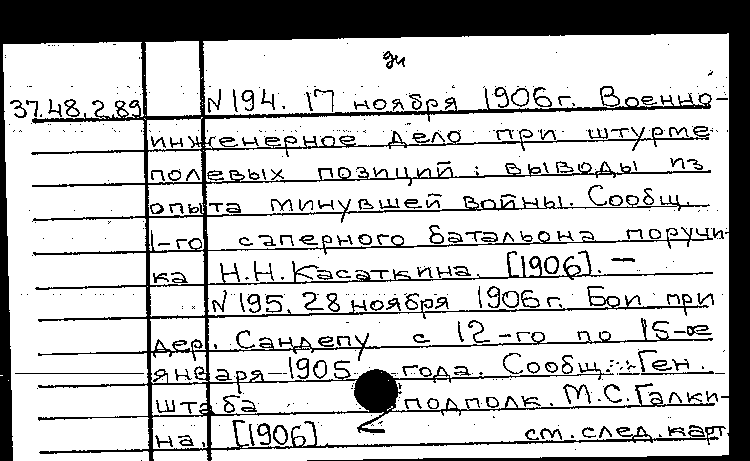 94
37.48.2.89 N 194. 17 ноября 1906г. Военно-
инженерное дело при штурме
полевых позиций: выводы из
опыта минувшей войны. Сообщ.
1-го саперного батальона поручи-
ка Н.Н. Касаткина. [1906]. —
N 195. 28 ноября 1906г. Бои при
дер. Сандепу с 12-го по 15-ое
января 1905 года. Сообщ. Ген.
штаба подполк. М.С. Галки-
на. [1906]. см. след. карт.